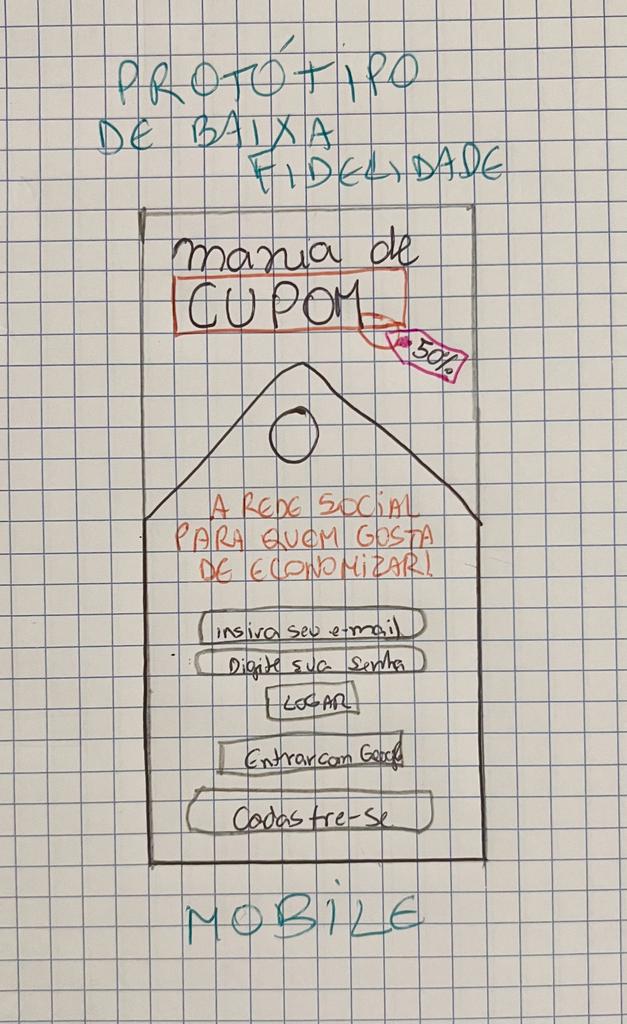 PROTÓTIPO
DE BAIXA
FIDELIDADE
mania de
CUPOM
50%
A REDE SOCIAL
PARA QUEM GOSTA
DE ECONOMIZAR!
insira seu e-mail
Digite sua senha
LOGAR
Entrar com Google
Cadastre-se
MOBILE